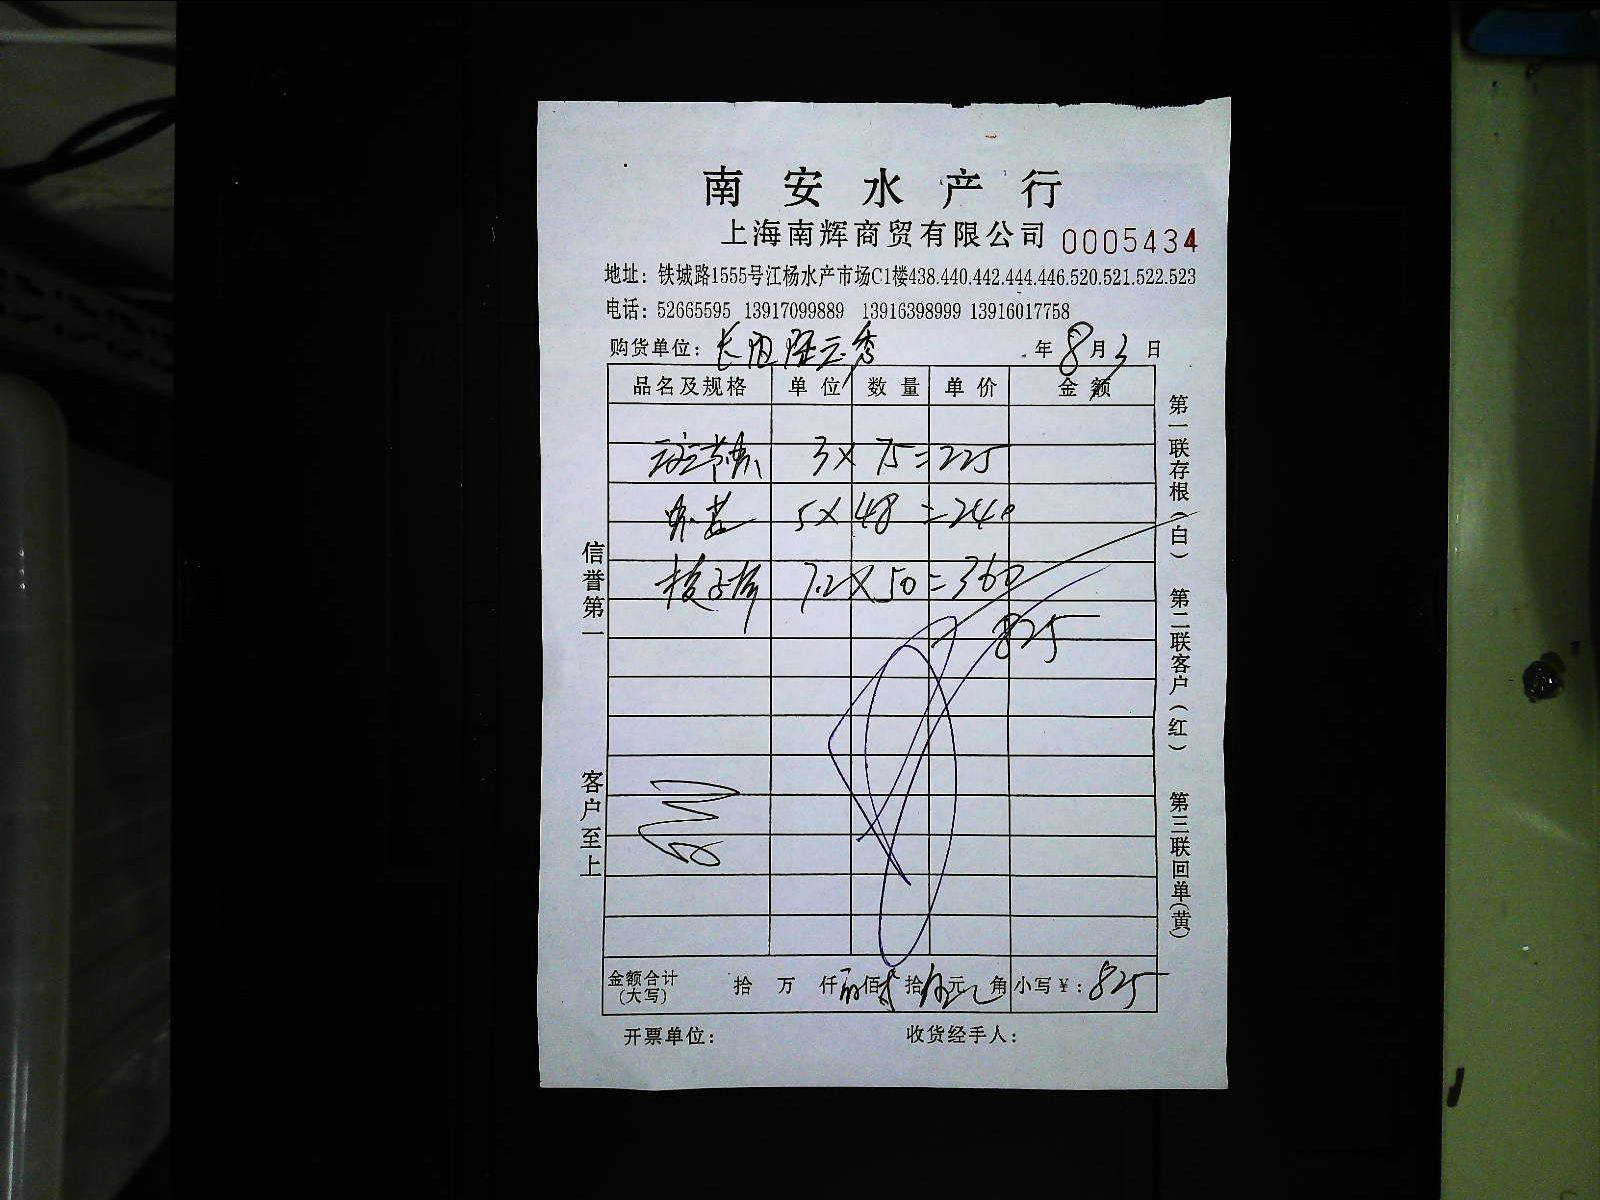 南安水产行
上海南辉商贸有限公司 0005434
地址：铁城路1555号江杨水产市场C1楼438.440.442.444.446.520.521.522.523
电话：52665595 13917099889 13916398999 13916017758
购货单位： 年8月3日
品名及规格 单位 数量 单价 金额
3×75=225
5×48=240
7.2×50=360
825
金额合计（大写） 拾 万 仟 佰 拾 元 角 小写￥：825
开票单位： 收货经手人：
信誉第一
客户至上
第一联存根（白） 第二联客户（红） 第三联回单（黄）